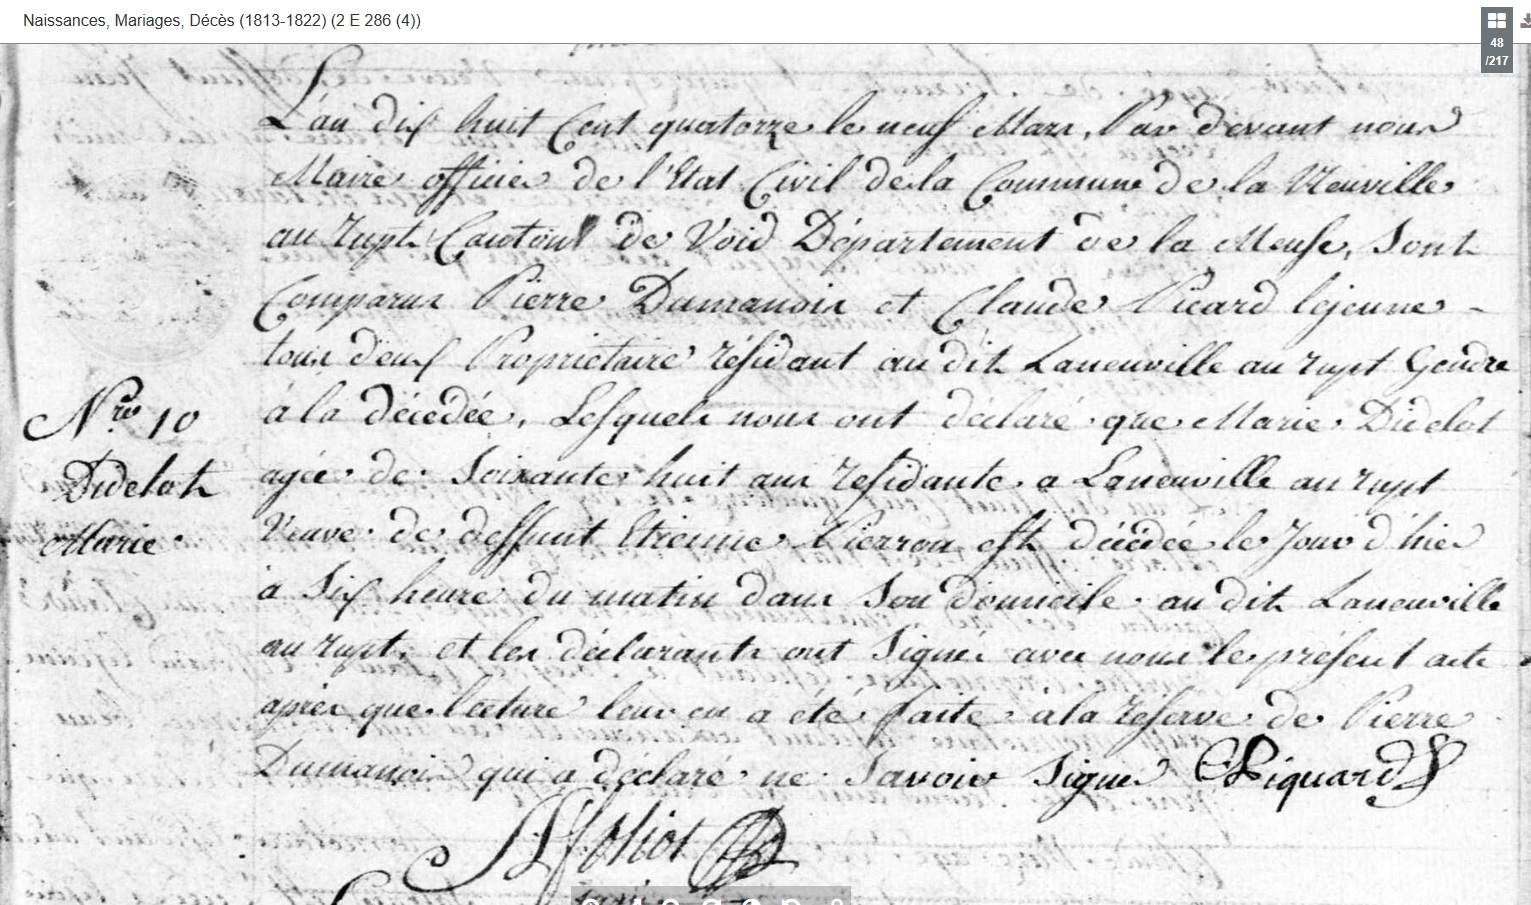 Naissances, Mariages, Décès (1813-1822) (2 E 286 (4))
48
/217
L'an dix huit Cent quatorze le neuf Mars, Par devant nous
Maire officier de l'Etat Civil de la Commune de la Neuville
au rupt Canton de Void Département de la Meuse, Sont
Comparus Pierre Dumanois et Claude Picard lejeune -
tous deux Propriétaire résidant au dit Laneuville au rupt Gendre
à la décédée, Lesquels nous ont déclaré que Marie Didelot
agée de Soixante huit ans résidante a Laneuville au rupt
Veuve de deffunt Etienne Pierron est décédée le Jour d'hier
à Six heure du matin dans Son domicile au dit Laneuville
au rupt, et les déclarants ont Signé avec nous le présent acte
après que lecture leur en a été faite à la réserve de Pierre
Dumanois qui a déclaré ne Savoir Signer CPiquard
Nro 10
Didelot
Marie